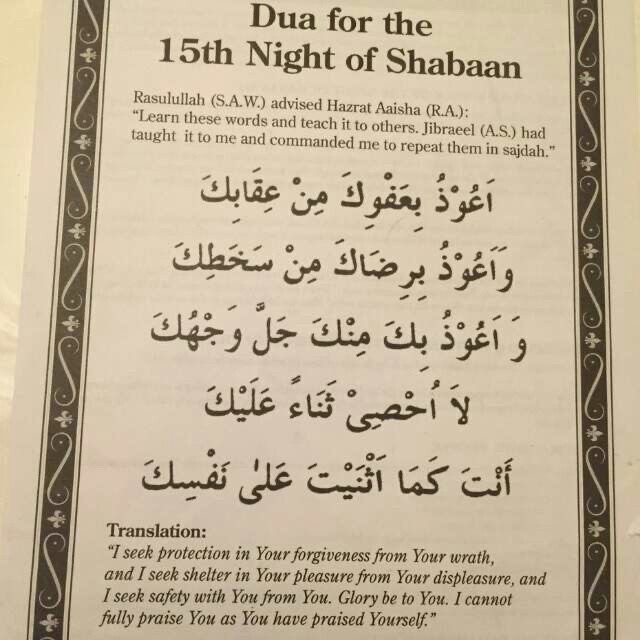 Dua for the
15th Night of Shabaan
Rasulullah (S.A.W.) advised Hazrat Aaisha (R.A.):
“Learn these words and teach it to others. Jibraeel (A.S.) had
taught it to me and commanded me to repeat them in sajdah.”
اَعُوْذُ بِعَفْوِكَ مِنْ عِقَابِكَ
وَاَعُوْذُ بِرِضَاكَ مِنْ سَخَطِكَ
وَ اَعُوْذُ بِكَ مِنْكَ جَلَّ وَجْهُكَ
لاَ اُحْصِىْ ثَنَاءً عَلَيْكَ
أَنْتَ كَمَا اَثْنَيْتَ عَلىٰ نَفْسِكَ
Translation:
“I seek protection in Your forgiveness from Your wrath,
and I seek shelter in Your pleasure from Your displeasure, and
I seek safety with You from You. Glory be to You. I cannot
fully praise You as You have praised Yourself.”